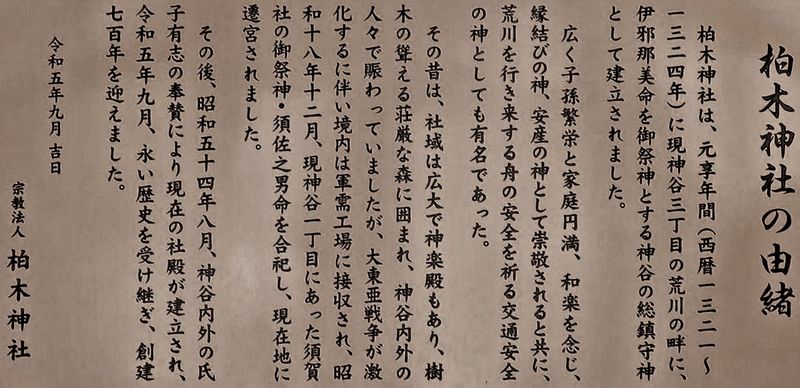 柏木神社の由緒
柏木神社は、元享年間(西暦一三二一〜
一三二四年)に現神谷三丁目の荒川の畔に、
伊邪那美命を御祭神とする神谷の総鎮守神
として建立されました。
広く子孫繁栄と家庭円満、和楽を念じ、
縁結びの神、安産の神として崇敬されると共に、
荒川を行き来する舟の安全を祈る交通安全
の神としても有名であった。
その昔は、社域は広大で神楽殿もあり、樹
木の聳える荘厳な森に囲まれ、神谷内外の
人々で賑わっていましたが、大東亜戦争が激
化するに伴い境内は軍需工場に接収され、昭
和十八年十二月、現神谷一丁目にあった須賀
社の御祭神・須佐之男命を合祀し、現在地に
遷宮されました。
その後、昭和五十四年八月、神谷内外の氏
子有志の奉賛により現在の社殿が建立され、
令和五年九月、永い歴史を受け継ぎ、創建
七百年を迎えました。
令和五年九月 吉日
宗教法人 柏木神社